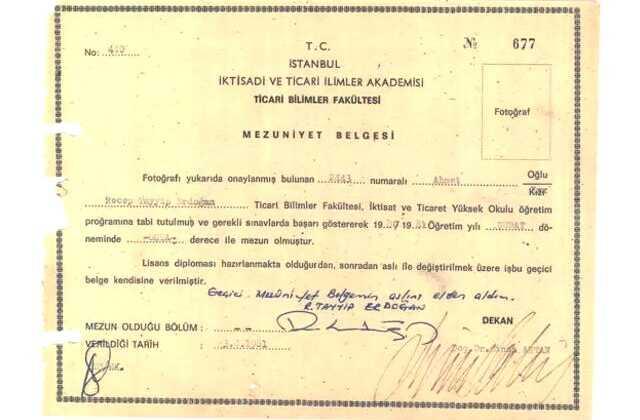 No:
T. C.
№ 677
İSTANBUL
İKTİSADİ VE TİCARİ İLİMLER AKADEMİSİ
TİCARİ BİLİMLER FAKÜLTESİ
Fotoğraf
MEZUNİYET BELGESİ
Fotoğrafı yukarıda onaylanmış bulunan 2443 numaralı Ahmet Oğlu
Kızı
Recep Tayyip Erdoğan Ticari Bilimler Fakültesi, İktisat ve Ticaret Yüksek Okulu öğretim
programına tabi tutulmuş ve gerekli sınavlarda başarı göstererek 1980 1981 Öğretim yılı ŞUBAT dö-
neminde derece ile mezun olmuştur.
Lisans diploması hazırlanmakta olduğundan, sonradan aslı ile değiştirilmek üzere işbu geçici
belge kendisine verilmiştir.
Geçici Mezuniyet Belgemin aslını elden aldım.
R. TAYYİP ERDOĞAN
MEZUN OLDUĞU BÖLÜM : --
DEKAN
VERİLDİĞİ TARİH :
Doç. Dr.